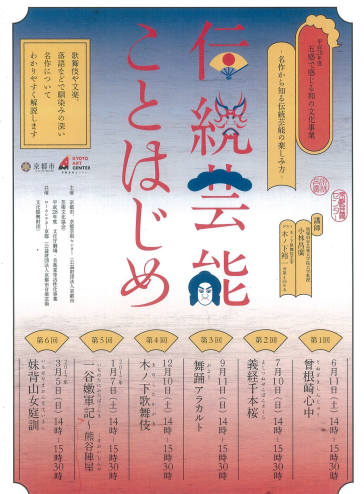 平成28年度
五感で感じる和の文化事業
伝統芸能
ことはじめ
−名作から知る伝統芸能の楽しみ方−
歌舞伎や文楽、
落語などで馴染みの深い
名作について
わかりやすく解説します
京都市
KYOTO
ART
CENTER
講師
小林昌廣
木ノ下裕一
第1回
6月11日(土)14時−15時30分
曽根崎心中
第2回
7月10日(日)14時−15時30分
義経千本桜
第3回
9月11日(日)14時−15時30分
舞踊アラカルト
第4回
12月10日(土)14時−15時30分
木ノ下歌舞伎
第5回
1月7日(土)14時−15時30分
一谷嫩軍記〜熊谷陣屋
第6回
3月5日(日)14時−15時30分
妹背山女庭訓